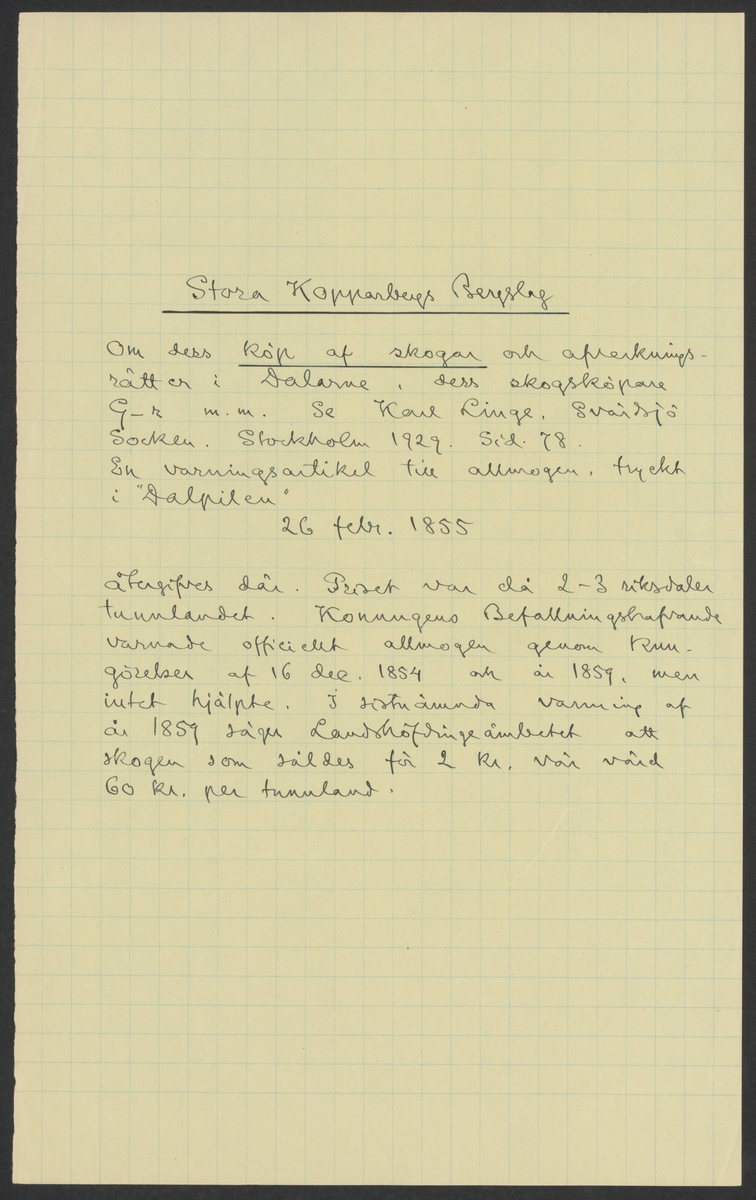 Stora Kopparbergs Bergslag
Om dess köp af skogar och afverknings-
rätter i Dalarne, dess skogsköpare
G–r m.m. Se Karl Linge, Svärdsjö
Socken. Stockholm 1929. Sid. 78.
En varningsartikel till allmogen, tryckt
i "Dalpilen"
26 febr. 1855
återgifves där. Priset var då 2–3 riksdaler
tunnlandet. Konungens Befallningshafvande
varnade officiellt allmogen genom kun-
görelser af 16 dec. 1854 och år 1859, men
intet hjälpte. I sistnämnda varning af
år 1859 säger Landshöfdingeämbetet att
skogen som såldes för 2 kr. var värd
60 kr. per tunnland.